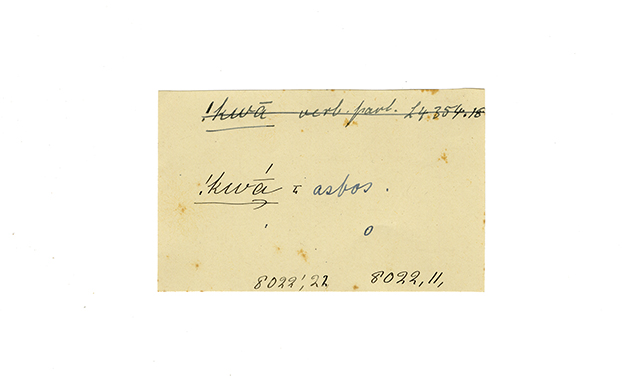 !kwā verb. part. L4 354.18
!kwā́ = asbos.
o
8022', 22 8022, 11,